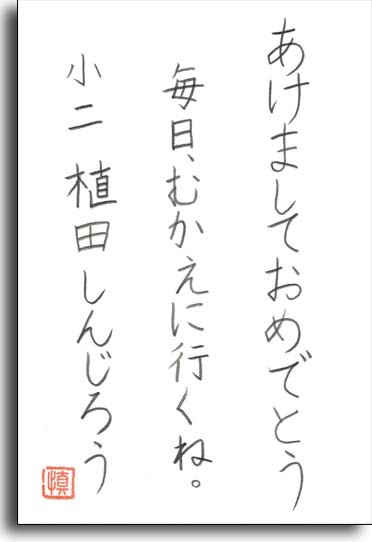 あけましておめでとう
毎日、むかえに行くね。
小二 植田しんじろう
慎